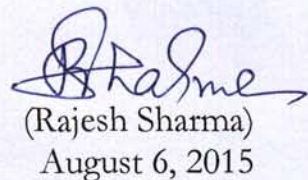 (Rajesh Sharma)
August 6, 2015